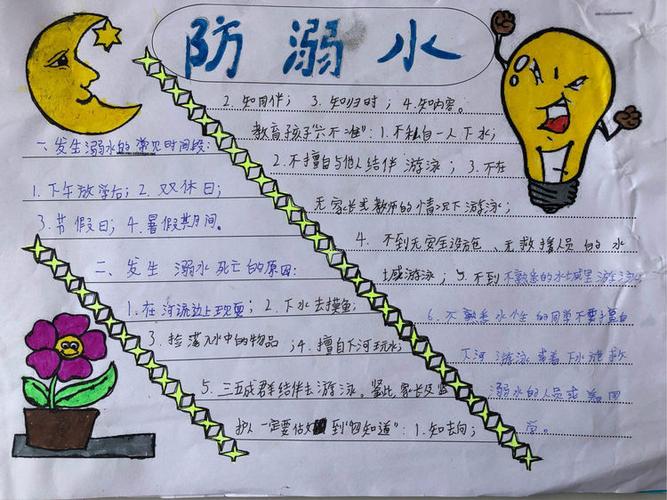 防溺水
一、发生溺水的常见时间段:
1.下午放学后; 2.双休日;
3.节假日; 4.暑假期间。
二、发生溺水死亡的原因:
1.在河流边上玩耍; 2.下水去摸鱼;
3.捡落水中的物品; 4.擅自下河玩水;
5.三五成群结伴去游泳。鉴此,家长及监
护人一定要做到"四知道": 1.知去向;
2.知同伴; 3.知归时; 4.知内容。
教育孩子"六不准": 1.不私自一人下水;
2.不擅自与他人结伴游泳; 3.不在
无家长或教师的情况下游泳;
4.不到无安全设施、无救援人员的水
域游泳; 5.不到不熟悉的水域里游泳;
6.不熟悉水性的同学不要擅自
下河游泳或者下水施救
溺水的人员或